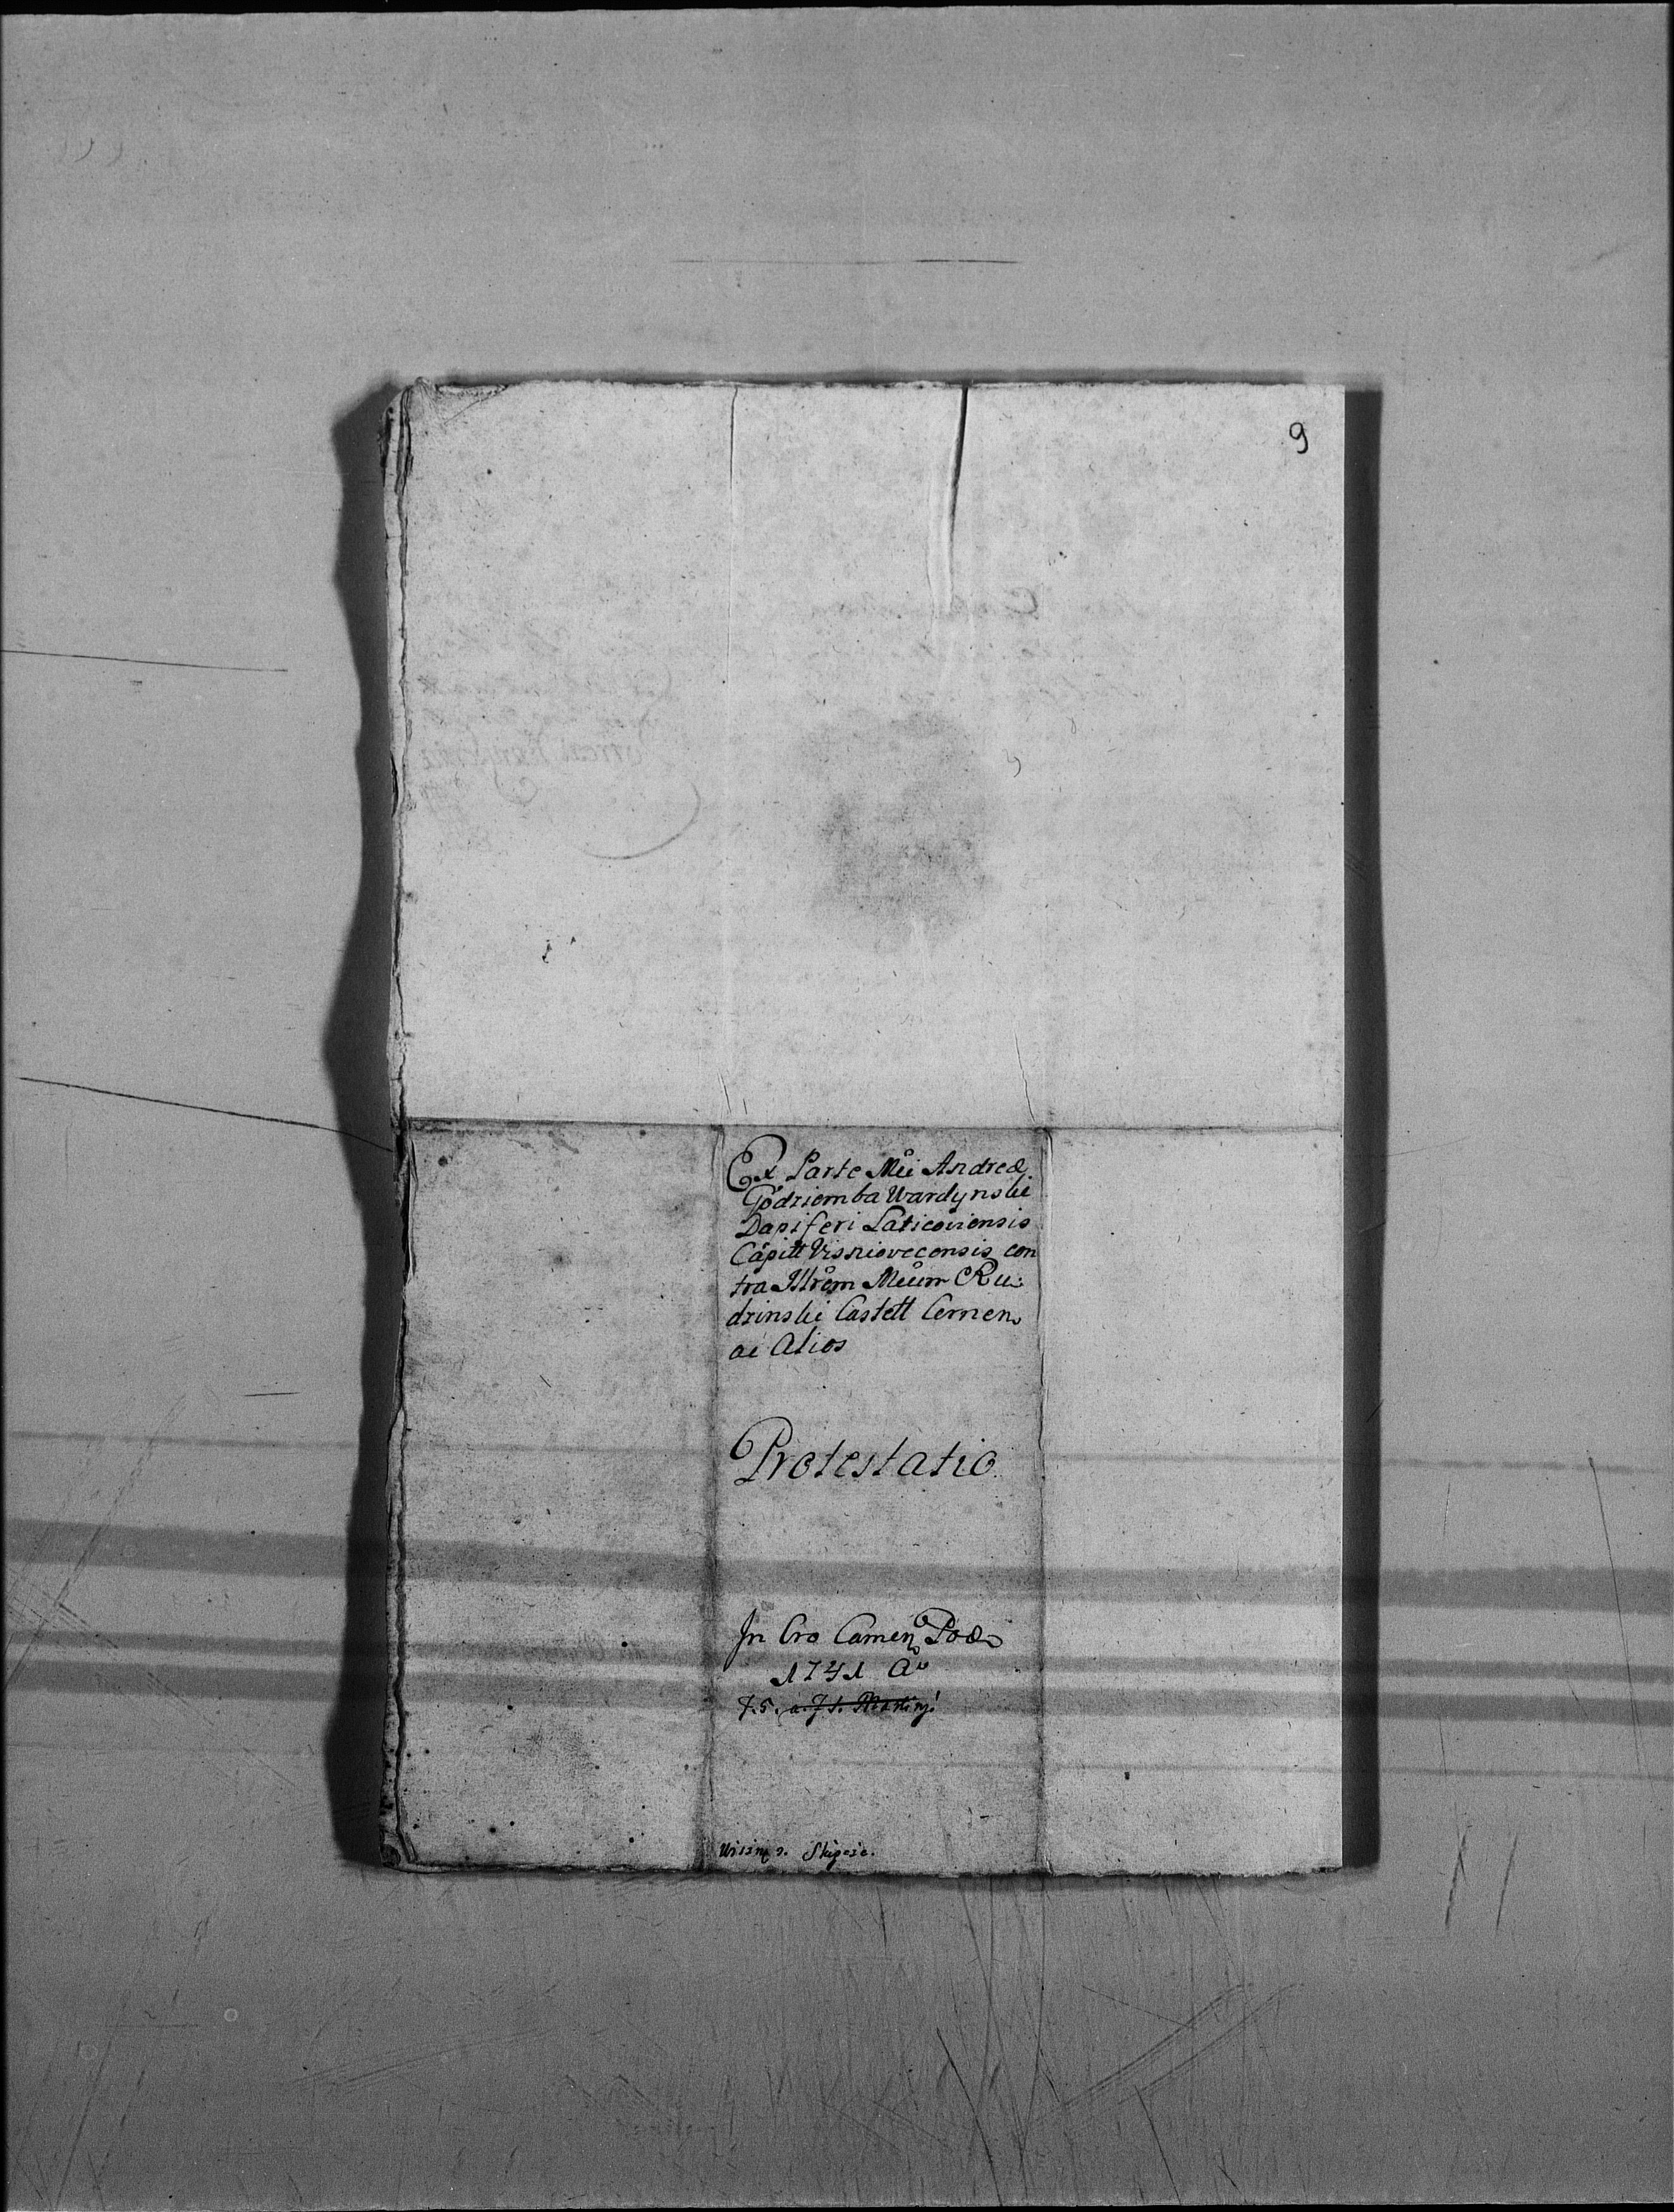 9
Ex Parte Mci Andreæ
Godziemba Wardynski
Dapiferi Laticoviensis
Capitt Visniovecensis con
tra Illrem Mcum Ru
dzinski Castell Cernen
ac Alios
Protestatio
In Cro Camen Pod
1741 Ao
F. 5. a. F s. Martiny